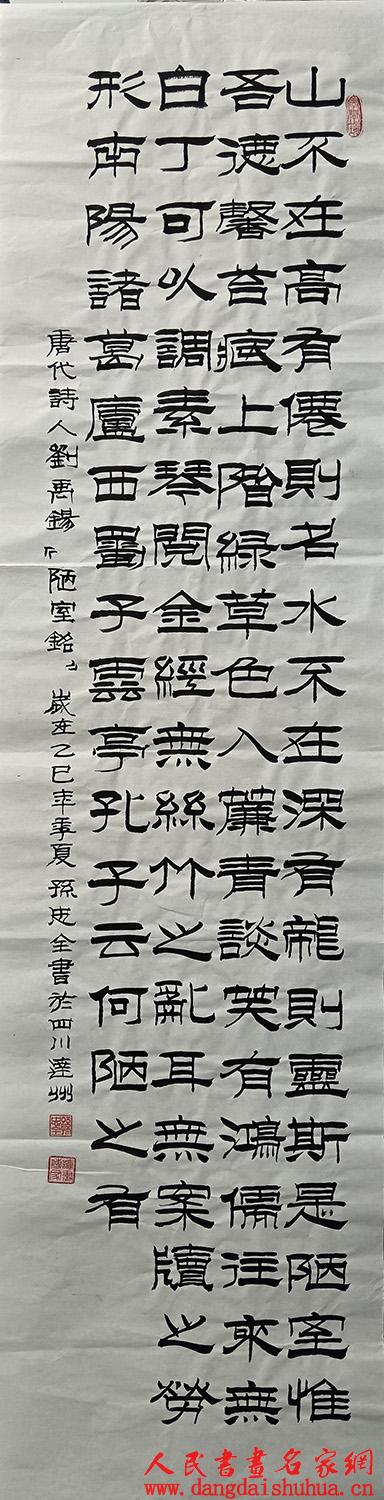 山不在高有僊則名水不在深有龍則靈斯是陋室惟
吾德馨苔痕上階綠草色入簾青談笑有鴻儒往來無
白丁可以調素琴閱金經無絲竹之亂耳無案牘之勞
形南陽諸葛廬西蜀子雲亭孔子云何陋之有
唐代詩人劉禹錫『陋室銘』歲在乙巳年季夏孫忠全書於四川達州
人民書畫名家網
www.dangdaishuhua.cn